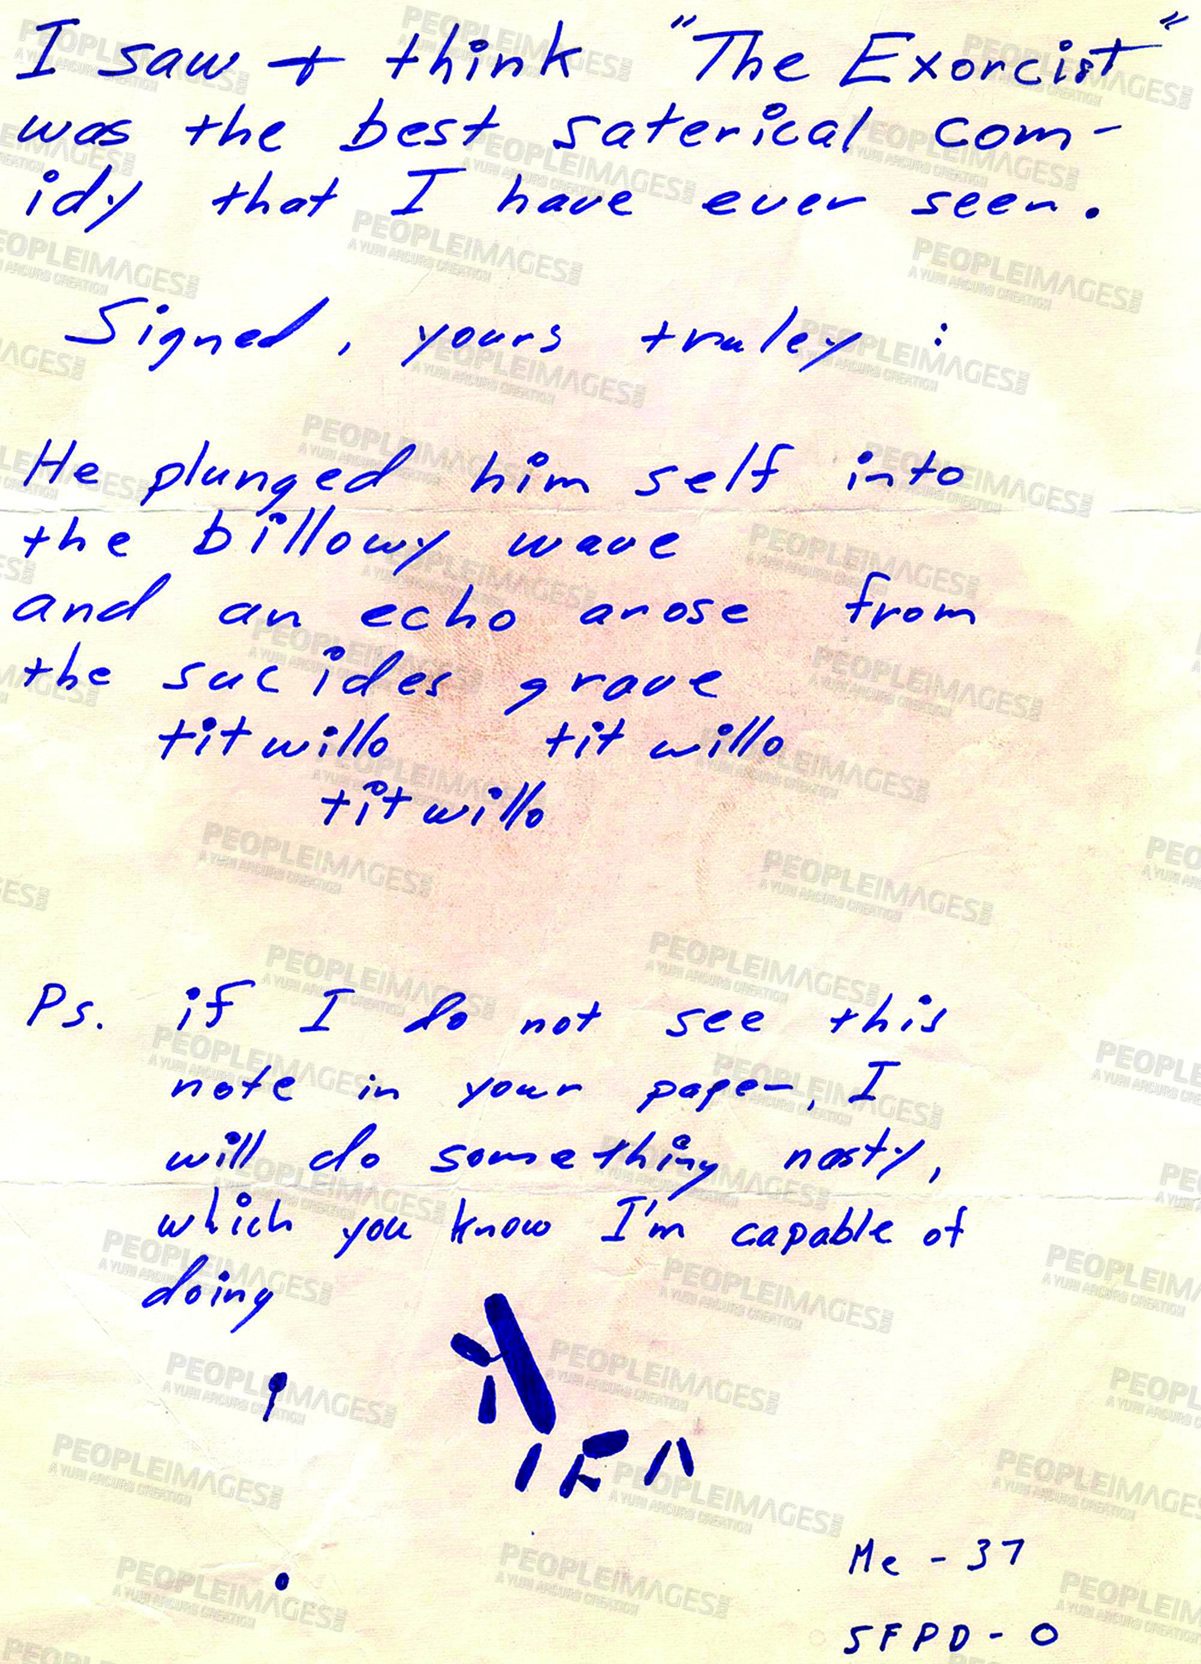 I saw + think "The Exorcist"
was the best saterical com-
idy that I have ever seen.
Signed, yours truley :
He plunged him self into
the billowy wave
and an echo arose from
the sucides grave
titwillo tit willo
titwillo
Ps. if I do not see this
note in your paper, I
will do something nasty,
which you know I'm capable of
doing
Me - 37
SFPD - 0
PEOPLEIMAGES
A YURI ARCURS CREATION